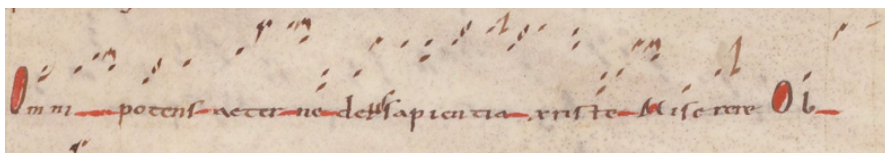 Omni potens aeterne deus sapientia xriste Miserere Ob